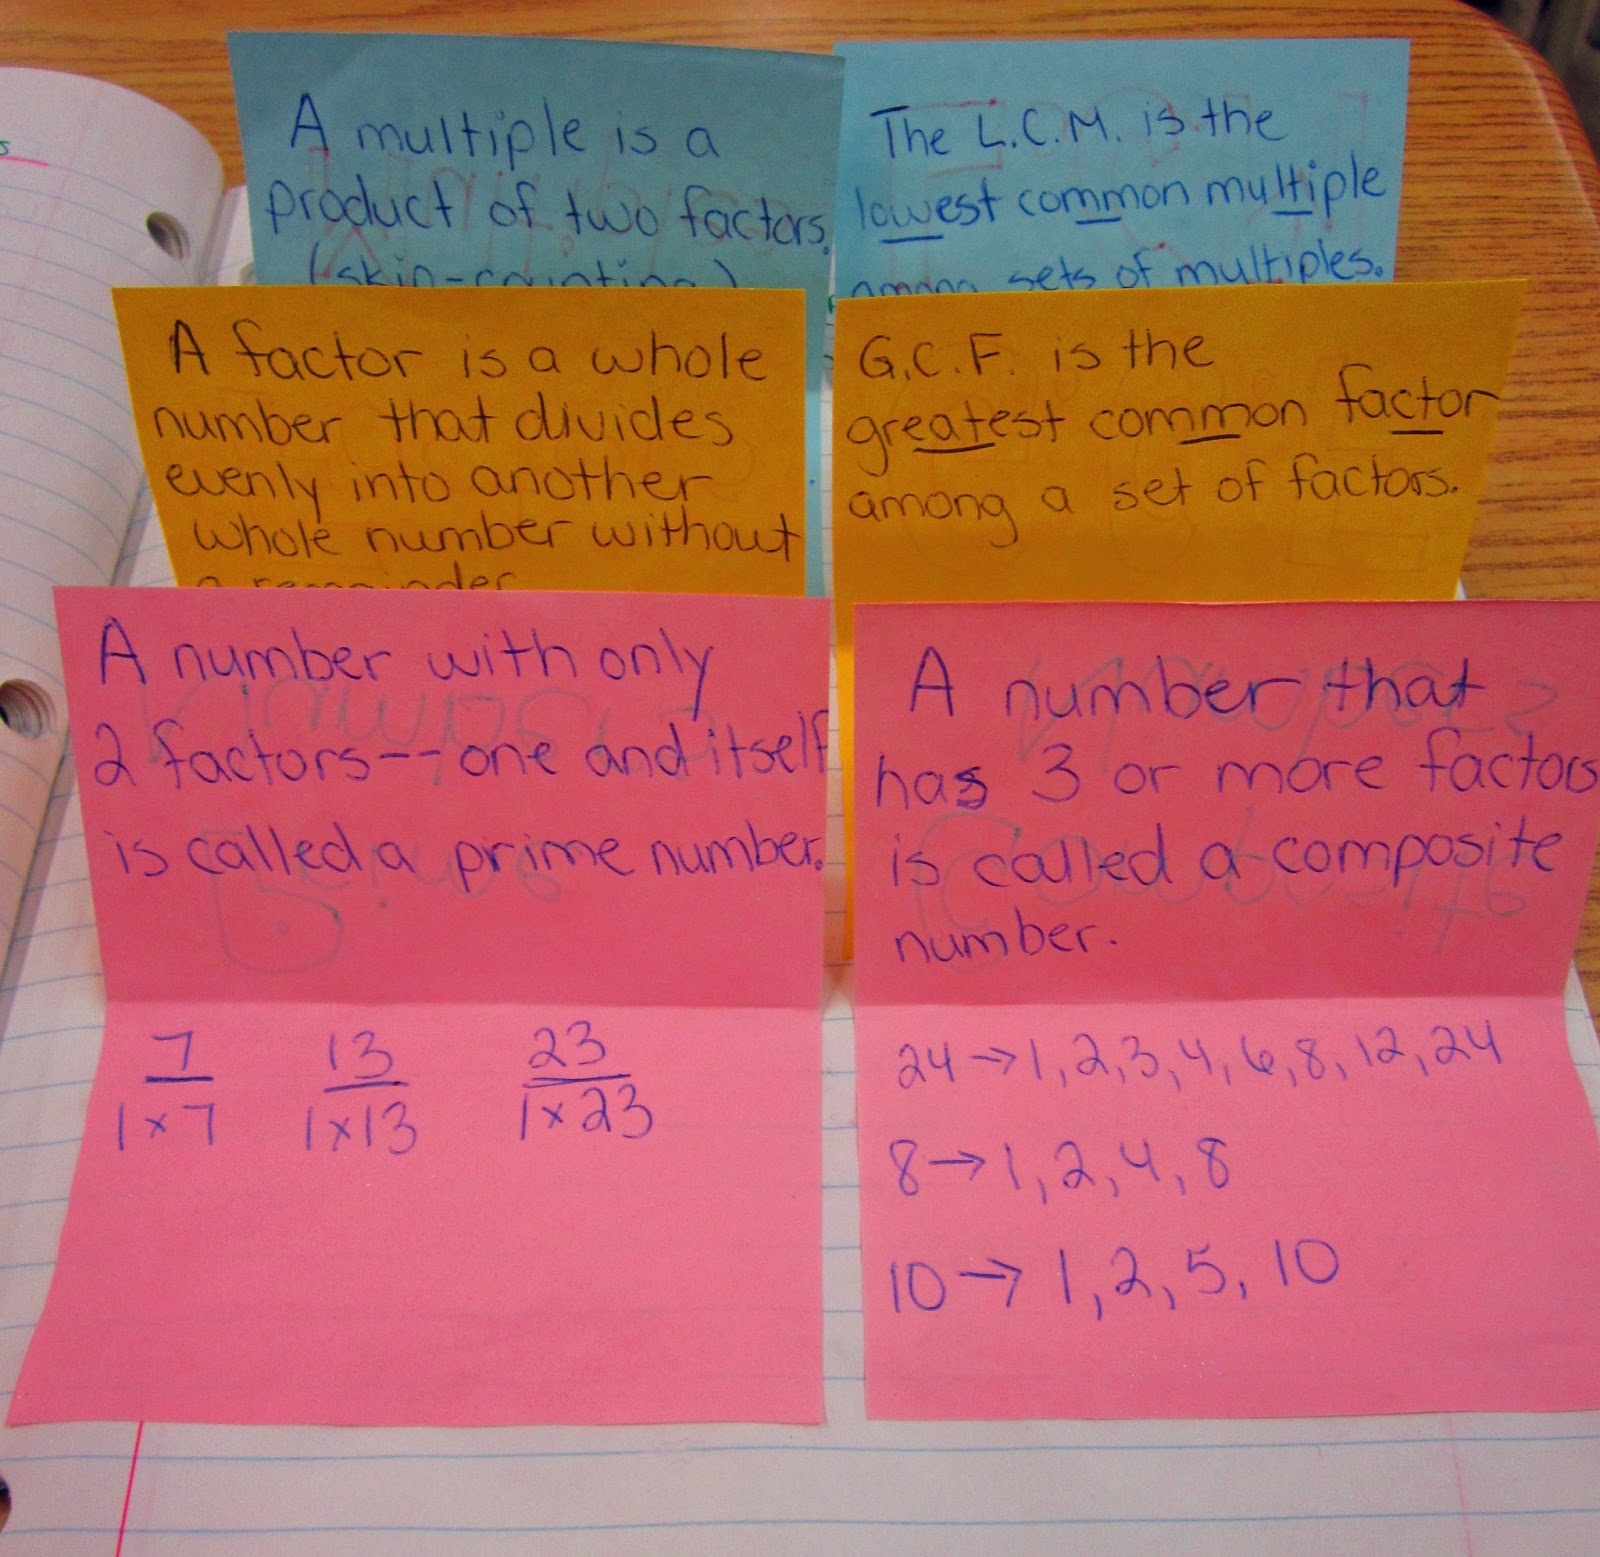 A multiple is a
product of two factors.
(skip-counting)
The L.C.M. is the
lowest common multiple
among sets of multiples.
A factor is a whole
number that divides
evenly into another
whole number without
a remainder
G.C.F. is the
greatest common factor
among a set of factors.
A number with only
2 factors--one and itself
is called a prime number.
7 13 23
1x7 1x13 1x23
A number that
has 3 or more factors
is called a composite
number.
24→1, 2, 3, 4, 6, 8, 12, 24
8→1, 2, 4, 8
10→ 1, 2, 5, 10